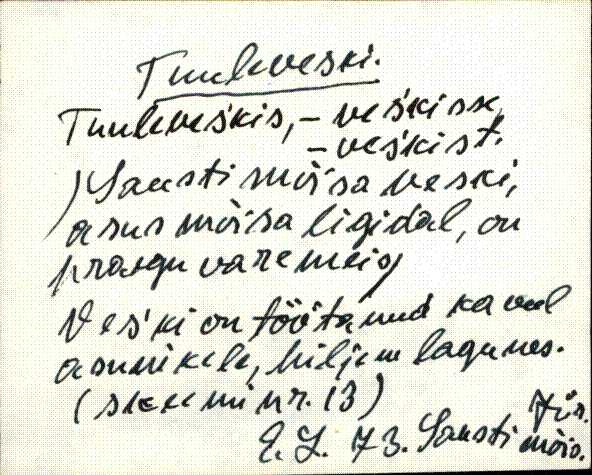 Tuuleveski.
Tuuleveśkis, – veśkisse,
– veśkist.
) Sausti mõisa veski,
asus mõisa ligidal, on
praegu varemeis)
Veśki on töötanud ka veel
asunikele, hiljem lagunes.
(skeemi nr. 13)
Jür.
E. L. 73. Sausti mõis.